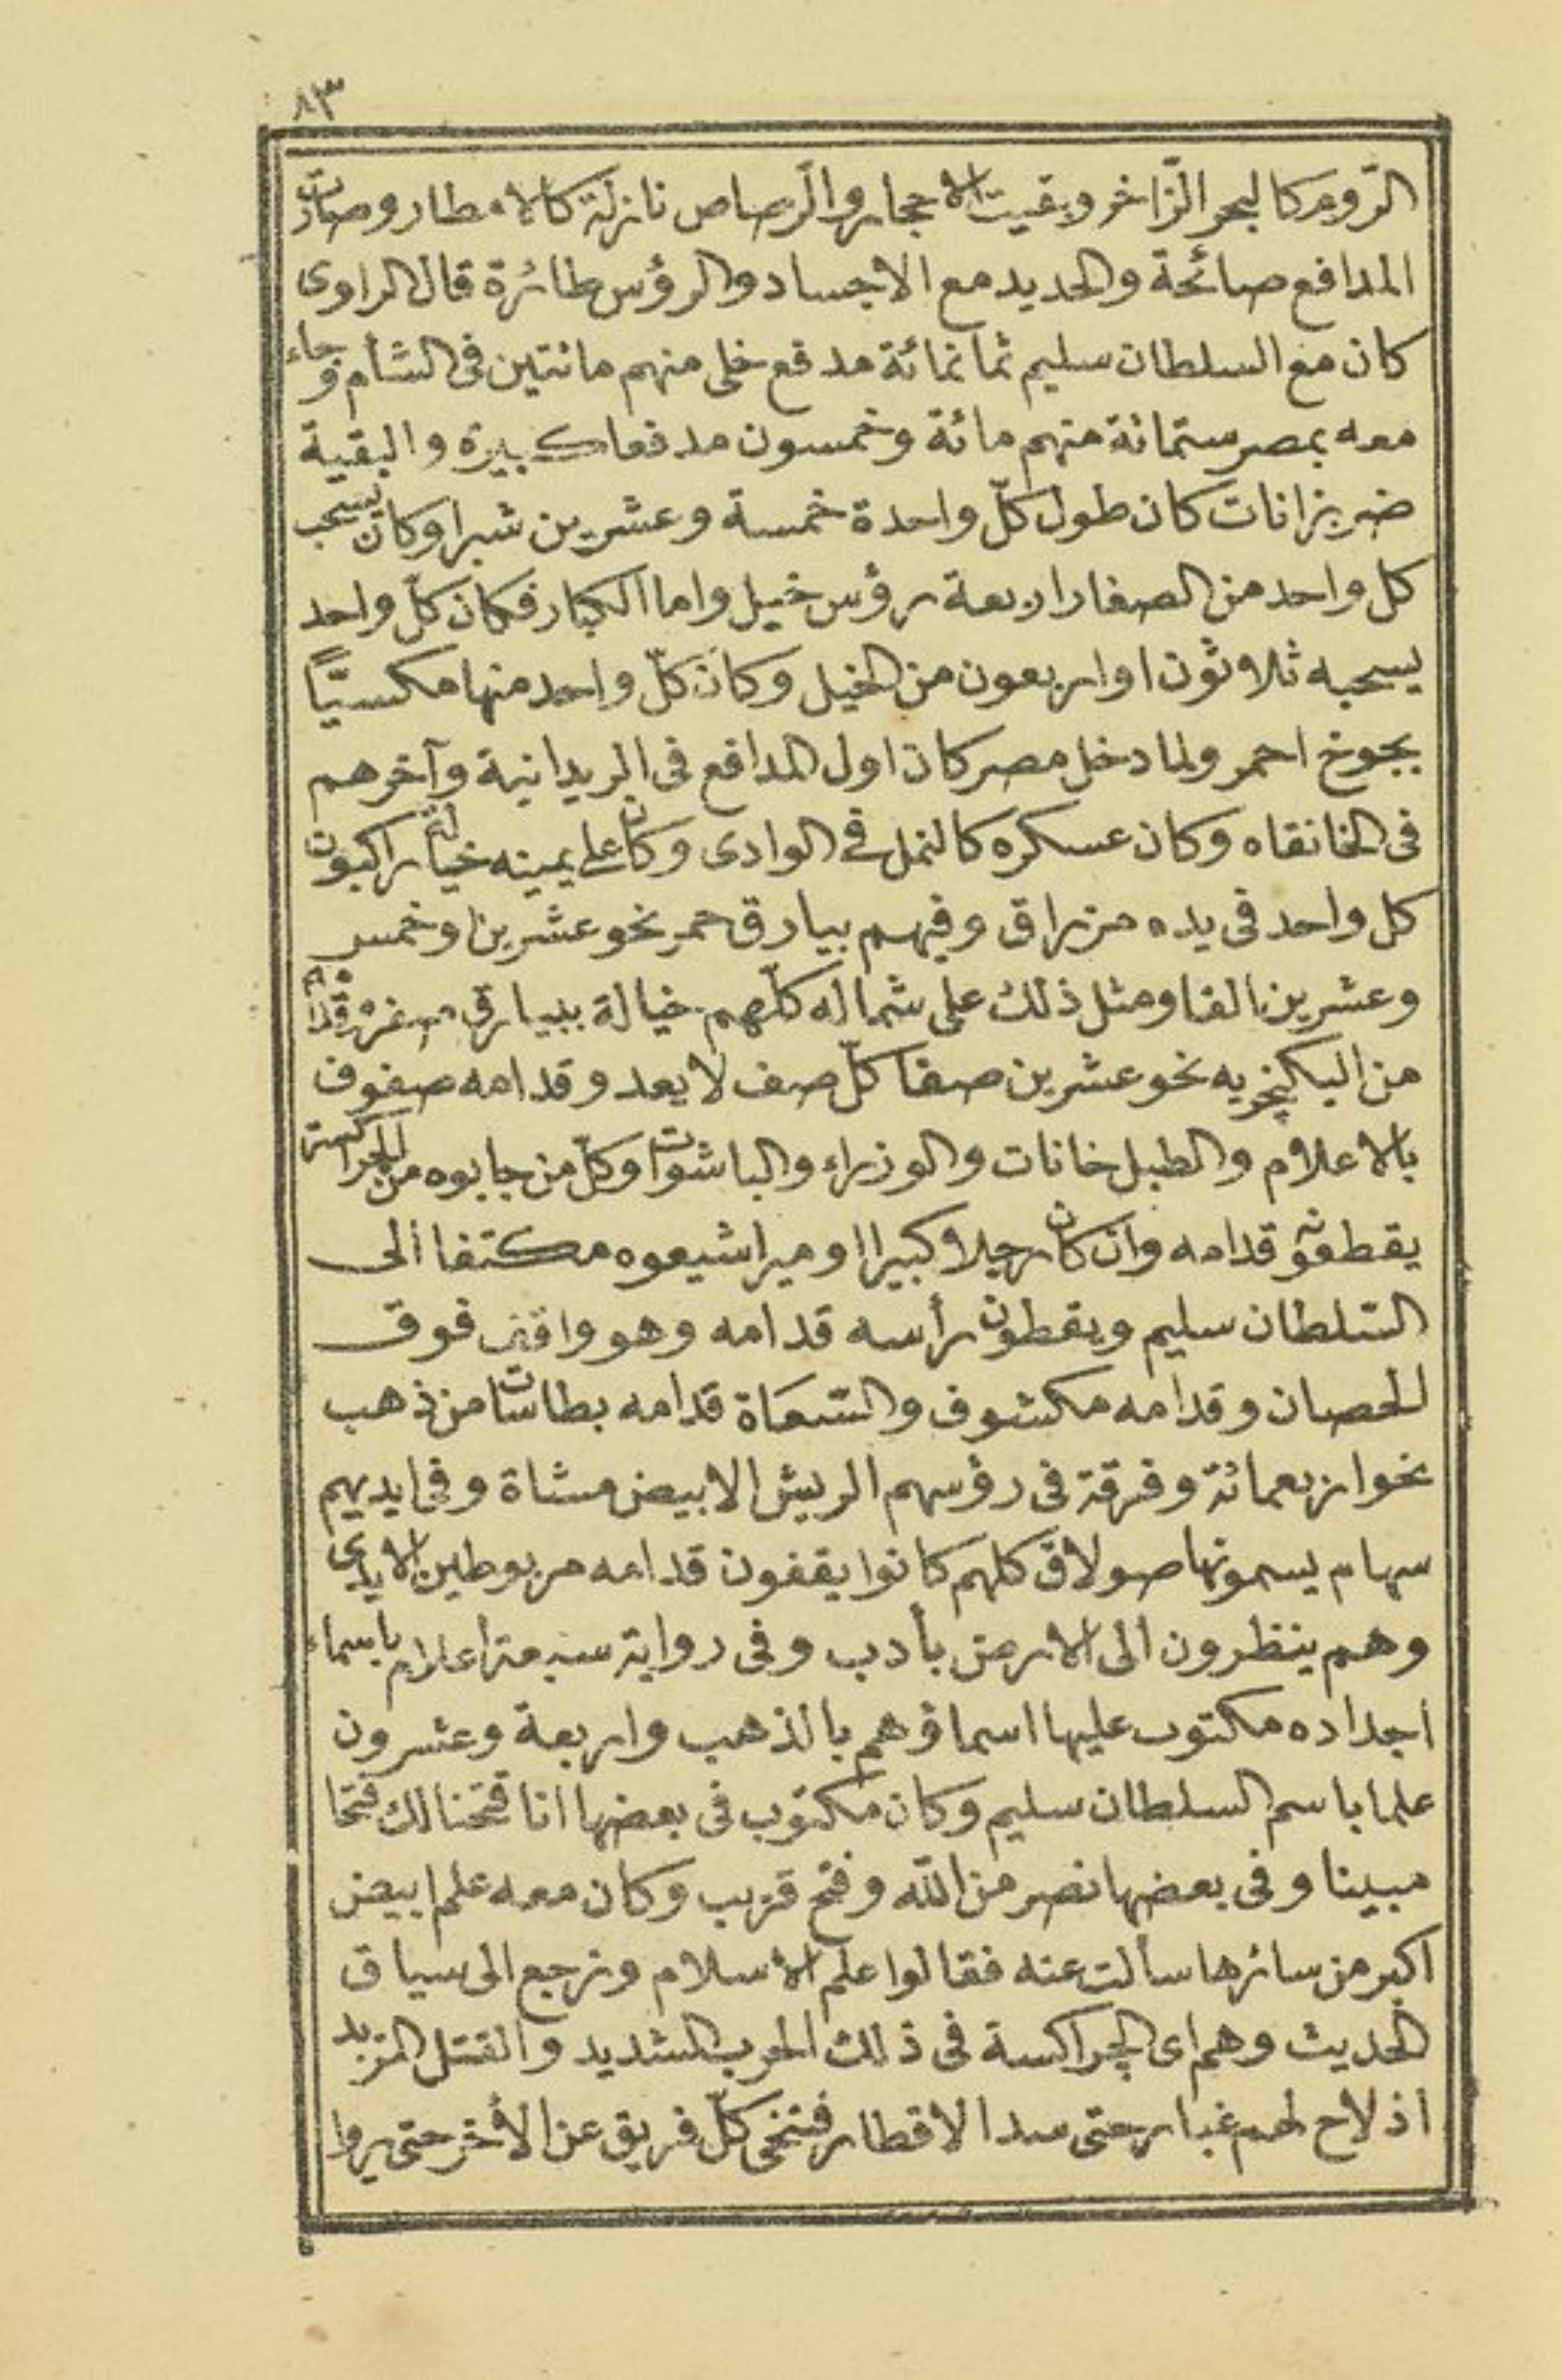 ٨٣
الرّوم كالبحر الزّاخر وبقيت الاحجار والرّصاص نازلة كالامطار وصارت
المدافع صائحة والحديد مع الاجساد والرؤس طائرة قال الراوى
كان مع السلطان سليم ثمانمائة مدفع خلى منهم مائتين فى الشأم وجاء
معه بمصر ستمائة منهم مائة وخمسون مدفعا كبيرة والبقية
ضربزانات كان طول كلّ واحدة خمسة وعشرين شبرا وكان يسحب
كل واحد من الصغار اربعة رؤس خيل واما الكبار فكان كلّ واحد
يسحبه ثلاثون او اربعون من الخيل وكان كلّ واحد منها مكسيًّا
بجوخ احمر ولما دخل مصر كان اول المدافع فى الريدانية وآخرهم
فى الخانقاه وكان عسكره كالنمل فى الوادى وكان على يمينه خيالة راكبون
كل واحد فى يده مزراق وفيهم بيارق حمر نحو عشرين وخمس
وعشرين الفا ومثل ذلك على شماله كلّهم خيالة ببيارق صفر وقدامه
من اليكيچريه نحو عشرين صفا كلّ صف لا يعد وقدامه صفوف
بالاعلام والطبلخانات والوزراء والباشوات وكلّ من جابوه من الجراكسة
يقطعونه قدامه وان كان رجلا كبيرا اوميرا شيعوه مكتفا الى
السّلطان سليم ويقطعون رأسه قدامه وهو واقف فوق
الحصان وقدامه مكشوف والسّعاة قدامه بطاسات من ذهب
نحو اربعمائة وفرقة فى رؤسهم الريش الابيض مشاة وفى ايديهم
سهام يسمونها صولاق كلهم كانوا يقفون قدامه مربوطين الايدى
وهم ينظرون الى الارض بأدب وفى رواية سبعة اعلام باسماء
اجداده مكتوب عليها اسماؤهم بالذهب واربعة وعشرون
علما باسم السلطان سليم وكان مكتوب فى بعضها انا فتحنا لك فتحا
مبينا وفى بعضها نصر من اللّه وفتح قريب وكان معه علم ابيض
اكبر من سائرها سألت عنه فقالوا علم الاسلام ونرجع الى سياق
الحديث وهم اى الچراكسة فى ذلك الحرب الشديد والقتل المزيد
اذ لاح لهم غبار حتى سدا لاقطار فتنحى كلّ فريق عن الأخر حتى يروا